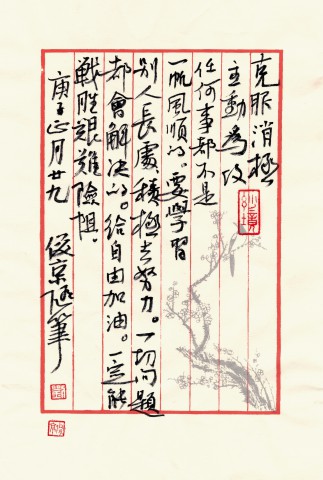 克服消極
主動為攻
任何事都不是
一帆風順的。要學習
別人長處，積極去努力。一切問題
都會解決的。給自由加油。一定能
戰胜艱難險阻。
庚子正月廿九
俊京隨筆